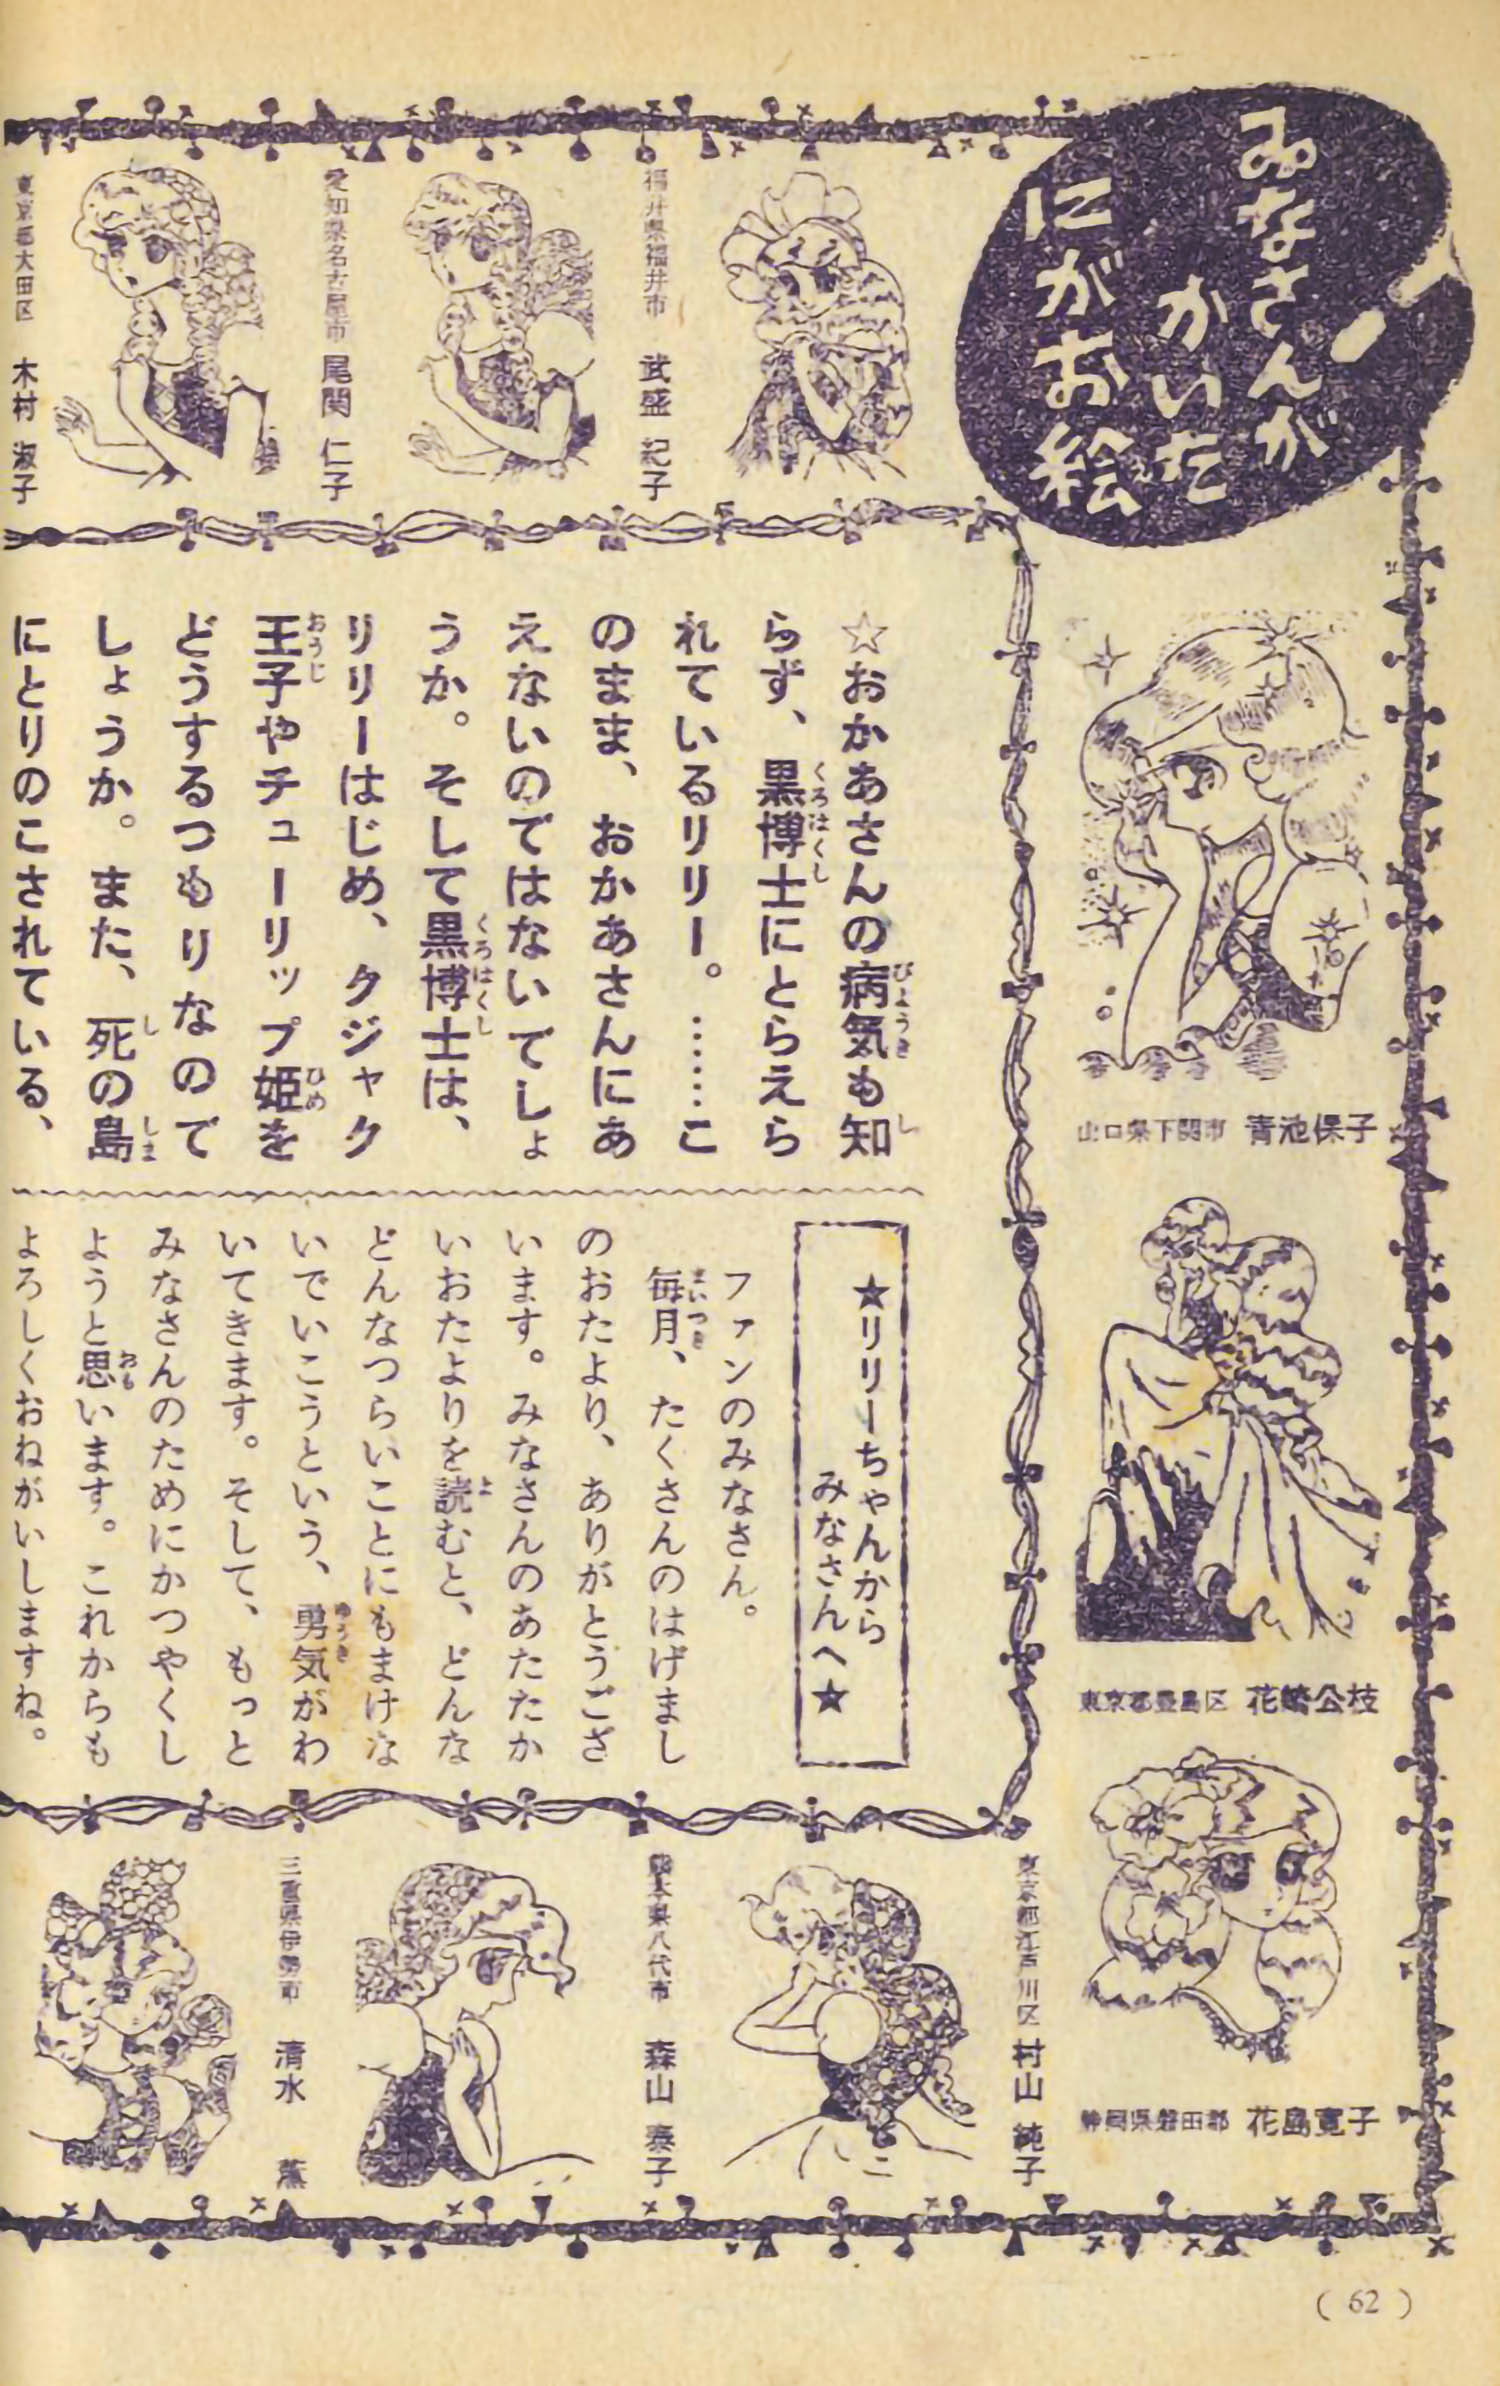 みなさんが
かいた
にがお絵
福井県福井市 武盛 紀子
愛知県名古屋市 尾関 仁子
東京都大田区 木村 淑子
山口県下関市 青池保子
東京都豊島区 花崎公枝
静岡県磐田郡 花島寛子
☆おかあさんの病気も知
らず、黒博士にとらえら
れているリリー。……こ
のまま、おかあさんにあ
えないのではないでしょ
うか。そして黒博士は、
リリーはじめ、クジャク
王子やチューリップ姫を
どうするつもりなので
しょうか。また、死の島
にとりのこされている、
★リリーちゃんから
みなさんへ★
ファンのみなさん。
毎月、たくさんのはげまし
のおたより、ありがとうござ
います。みなさんのあたたか
いおたよりを読むと、どんな
どんなつらいことにもまけな
いでいこうという、勇気がわ
いてきます。そして、もっと
みなさんのためにかつやくし
ようと思います。これからも
よろしくおねがいしますね。
東京都江戸川区 村山 純子
熊本県八代市 森山 泰子
三重県伊勢市 清水 薫
(62)